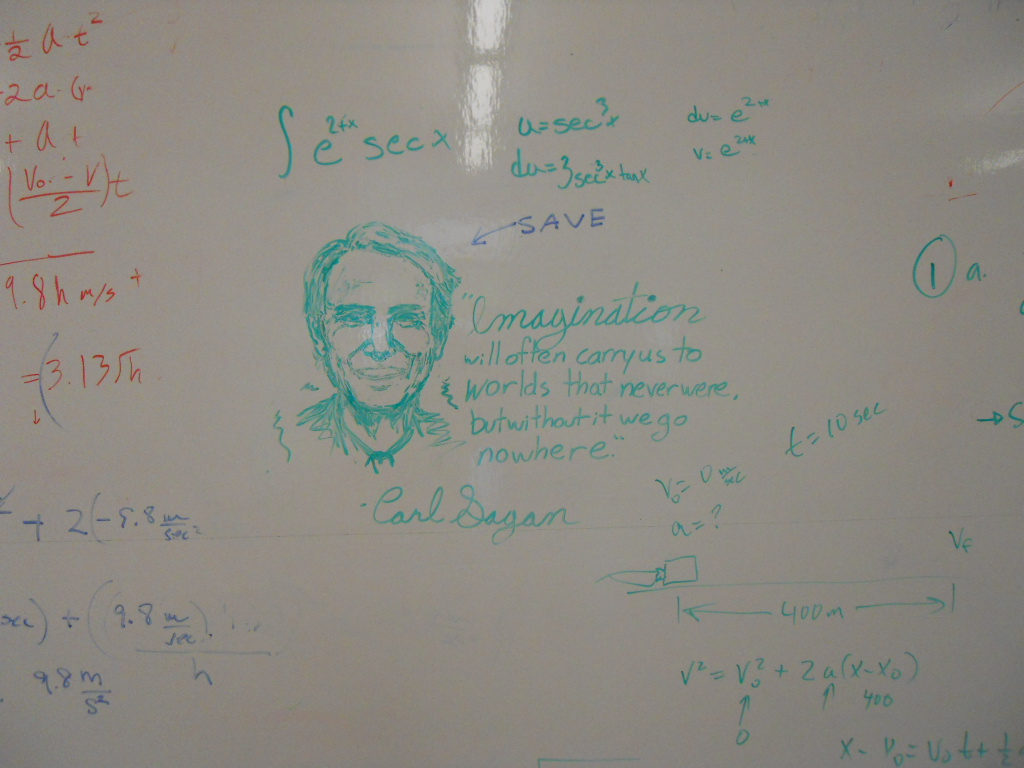 ½ a t²
2a (
+ a t
(V₀ - V / 2) t
9.8h m/s
= 3.13√h
+ 2(-9.8 m/sec²
sec) + (9.8 m/sec)
h
9.8 m/s²
∫ e^(2+x) sec x
u = sec³x
du = 3sec³x tanx
dv = e^(2+x)
v = e^(2+x)
SAVE
"Imagination
will often carry us to
worlds that never were,
but without it we go
nowhere."
-Carl Sagan
① a.
t = 10 sec
V₀ = 0 m/sec
a = ?
V_f
400m
V² = V₀² + 2a(x-x₀)
0
400
= V₀t + ½